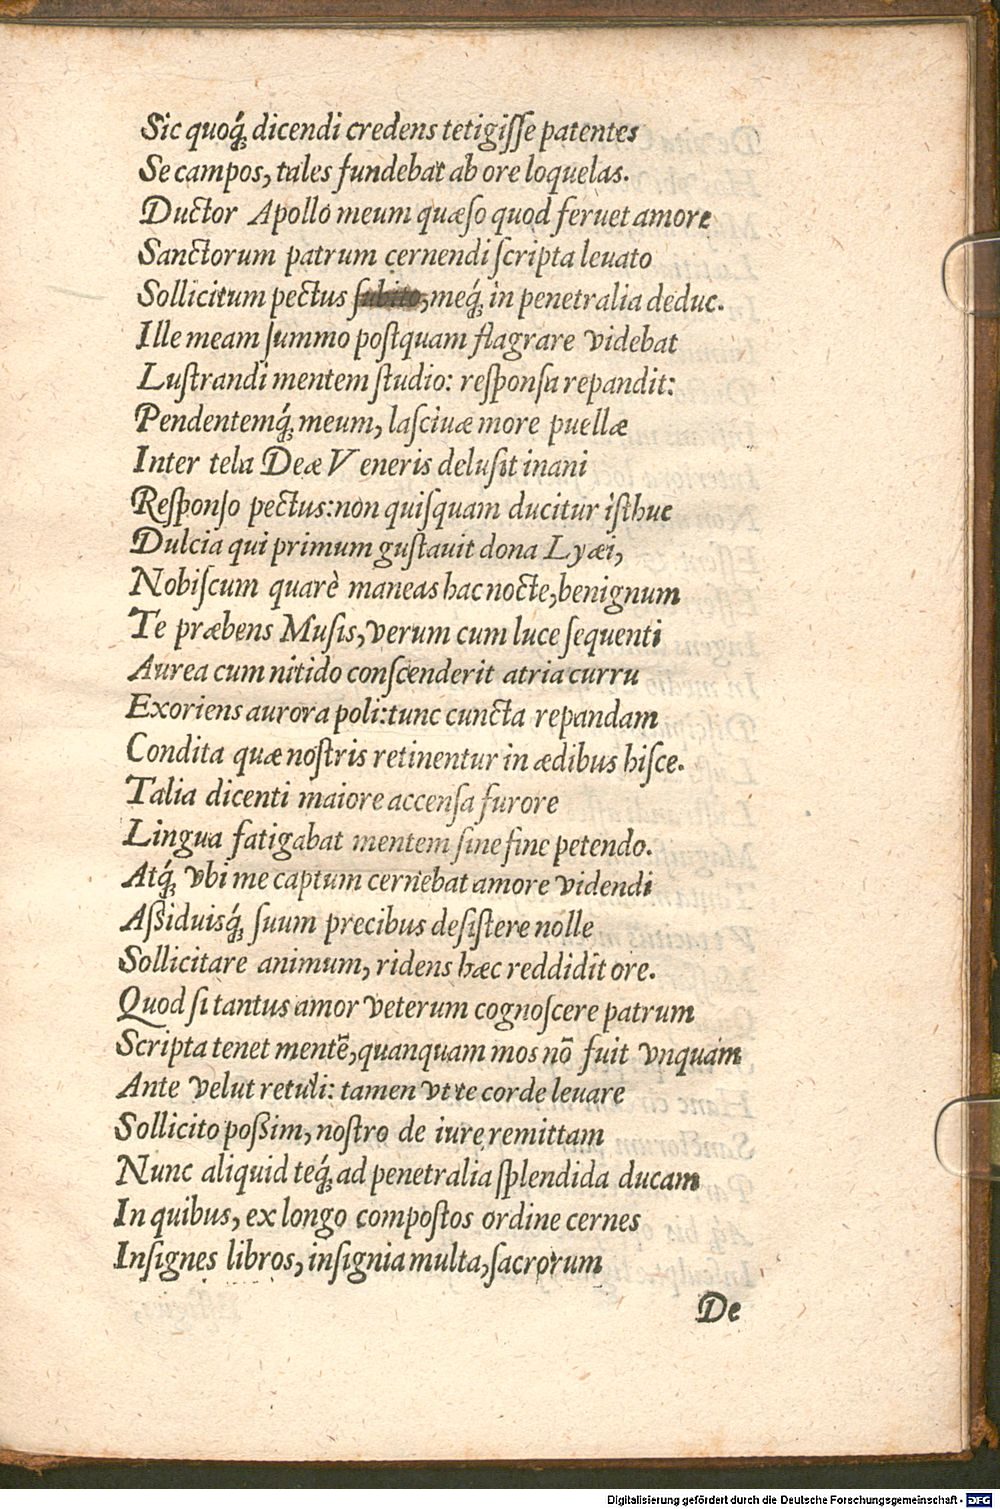 Sic quoq́; dicendi credens tetigiſſe patentes
Se campos, tales fundebat ab ore loquelas.
Ductor Apollo meum quæſo quod feruet amore
Sanctorum patrum cernendi ſcripta leuato
Sollicitum pectus ſubito, meq́; in penetralia deduc.
Ille meam ſummo poſtquam flagrare videbat
Luſtrandi mentem ſtudio: reſponſa repandit:
Pendentemq́; meum, laſciuæ more puellæ
Inter tela Deæ Veneris deluſit inani
Reſponſo pectus: non quiſquam ducitur iſthuc
Dulcia qui primum guſtauit dona Lyæi,
Nobiſcum quarè maneas hac nocte, benignum
Te præbens Muſis, verum cum luce ſequenti
Aurea cum nitido conſcenderit atria curru
Exoriens aurora poli: tunc cuncta repandam
Condita quæ noſtris retinentur in ædibus hiſce.
Talia dicenti maiore accenſa furore
Lingua fatigabat mentem ſine fine petendo.
Atq́; vbi me captum cernebat amore videndi
Aſſiduisq́; ſuum precibus deſiſtere nolle
Sollicitare animum, ridens hæc reddidit ore.
Quod ſi tantus amor veterum cognoſcere patrum
Scripta tenet mentē, quanquam mos nō fuit vnquam
Ante velut retuli: tamen vt te corde leuare
Sollicito poſſim, noſtro de iure remittam
Nunc aliquid teq́; ad penetralia ſplendida ducam
In quibus, ex longo compoſtos ordine cernes
Inſignes libros, inſignia multa, ſacrorum
De
Digitalisierung gefördert durch die Deutsche Forschungsgemeinschaft - DFG